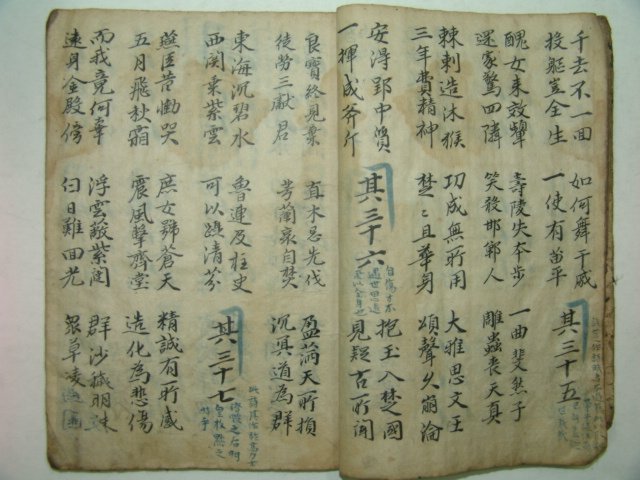 千去不一回
投軀豈全生
如何舞干戚
一使有苗平
其三十五
醜女来效顰
還家驚四隣
壽陵失本步
笑殺邯鄲人
一曲斐然子
雕蟲喪天真
棘刺造沐猴
三年費精神
功成無所用
楚楚且華身
大雅思文王
頌聲久崩淪
安得郢中質
一揮成斧斤
其三十六
自傷才不
遇世思退
抱玉入楚國
見疑古所聞
良寶終見棄
徒勞三獻君
直木忌先伐
芳蘭哀自焚
盈滿天所損
沉冥道為群
東海沉碧水
西関乗紫雲
魯連及柱史
可以躡清芬
其三十七
燕臣昔慟哭
五月飛秋霜
庶女號蒼天
震風擊齊堂
精誠有所感
造化為悲傷
而我竟何辜
遠身金殿傍
浮雲蔽紫闥
白日難回光
群沙穢明珠
衆草凌